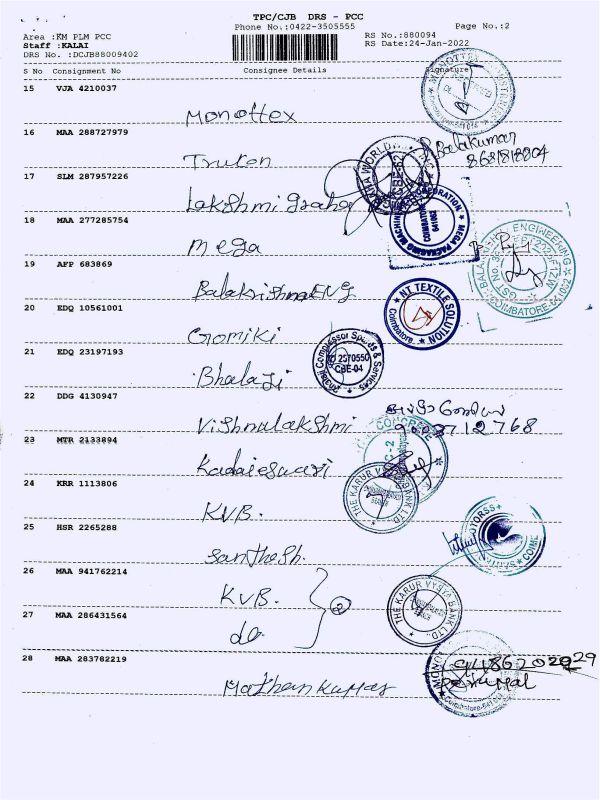 TPC/CJB DRS - PCC
Phone No.:0422-3505555
Page No.:2
Area :KM PLM PCC
RS No.:880094
Staff :KALAI
RS Date:24-Jan-2022
DRS No. :DCJB88009402
S No Consignment No Consignee Details Signature
15 VJA 4210037
Monottex
16 MAA 288727979
Truten
P Balakumar
8681818804
17 SLM 287957226
Lakshmi graha
18 MAA 277285754
Mega
MEGA PACKAGING MACHINES CORPORATION
COIMBATORE
641062
19 AFP 683869
BalakrishnaENG
BALAKRISHNA ENGINEERING
COIMBATORE-641062
20 EDQ 10561001
Gomiki
NT TEXTILE SOLUTION
Coimbatore
21 EDQ 23197193
Bhalaji
Balaji Compressor Spares & Services
CBE-04
22 DDG 4130947
Vishnulakshmi
23 MTR 2133894
Kadaieswari
24 KRR 1113806
KVB.
THE KARUR VYSYA BANK LTD.
25 HSR 2265288
Santhesh.
26 MAA 941762214
KVB.
2
THE KARUR VYSYA BANK LTD.
27 MAA 286431564
do
28 MAA 283782219
Mathan Kumar